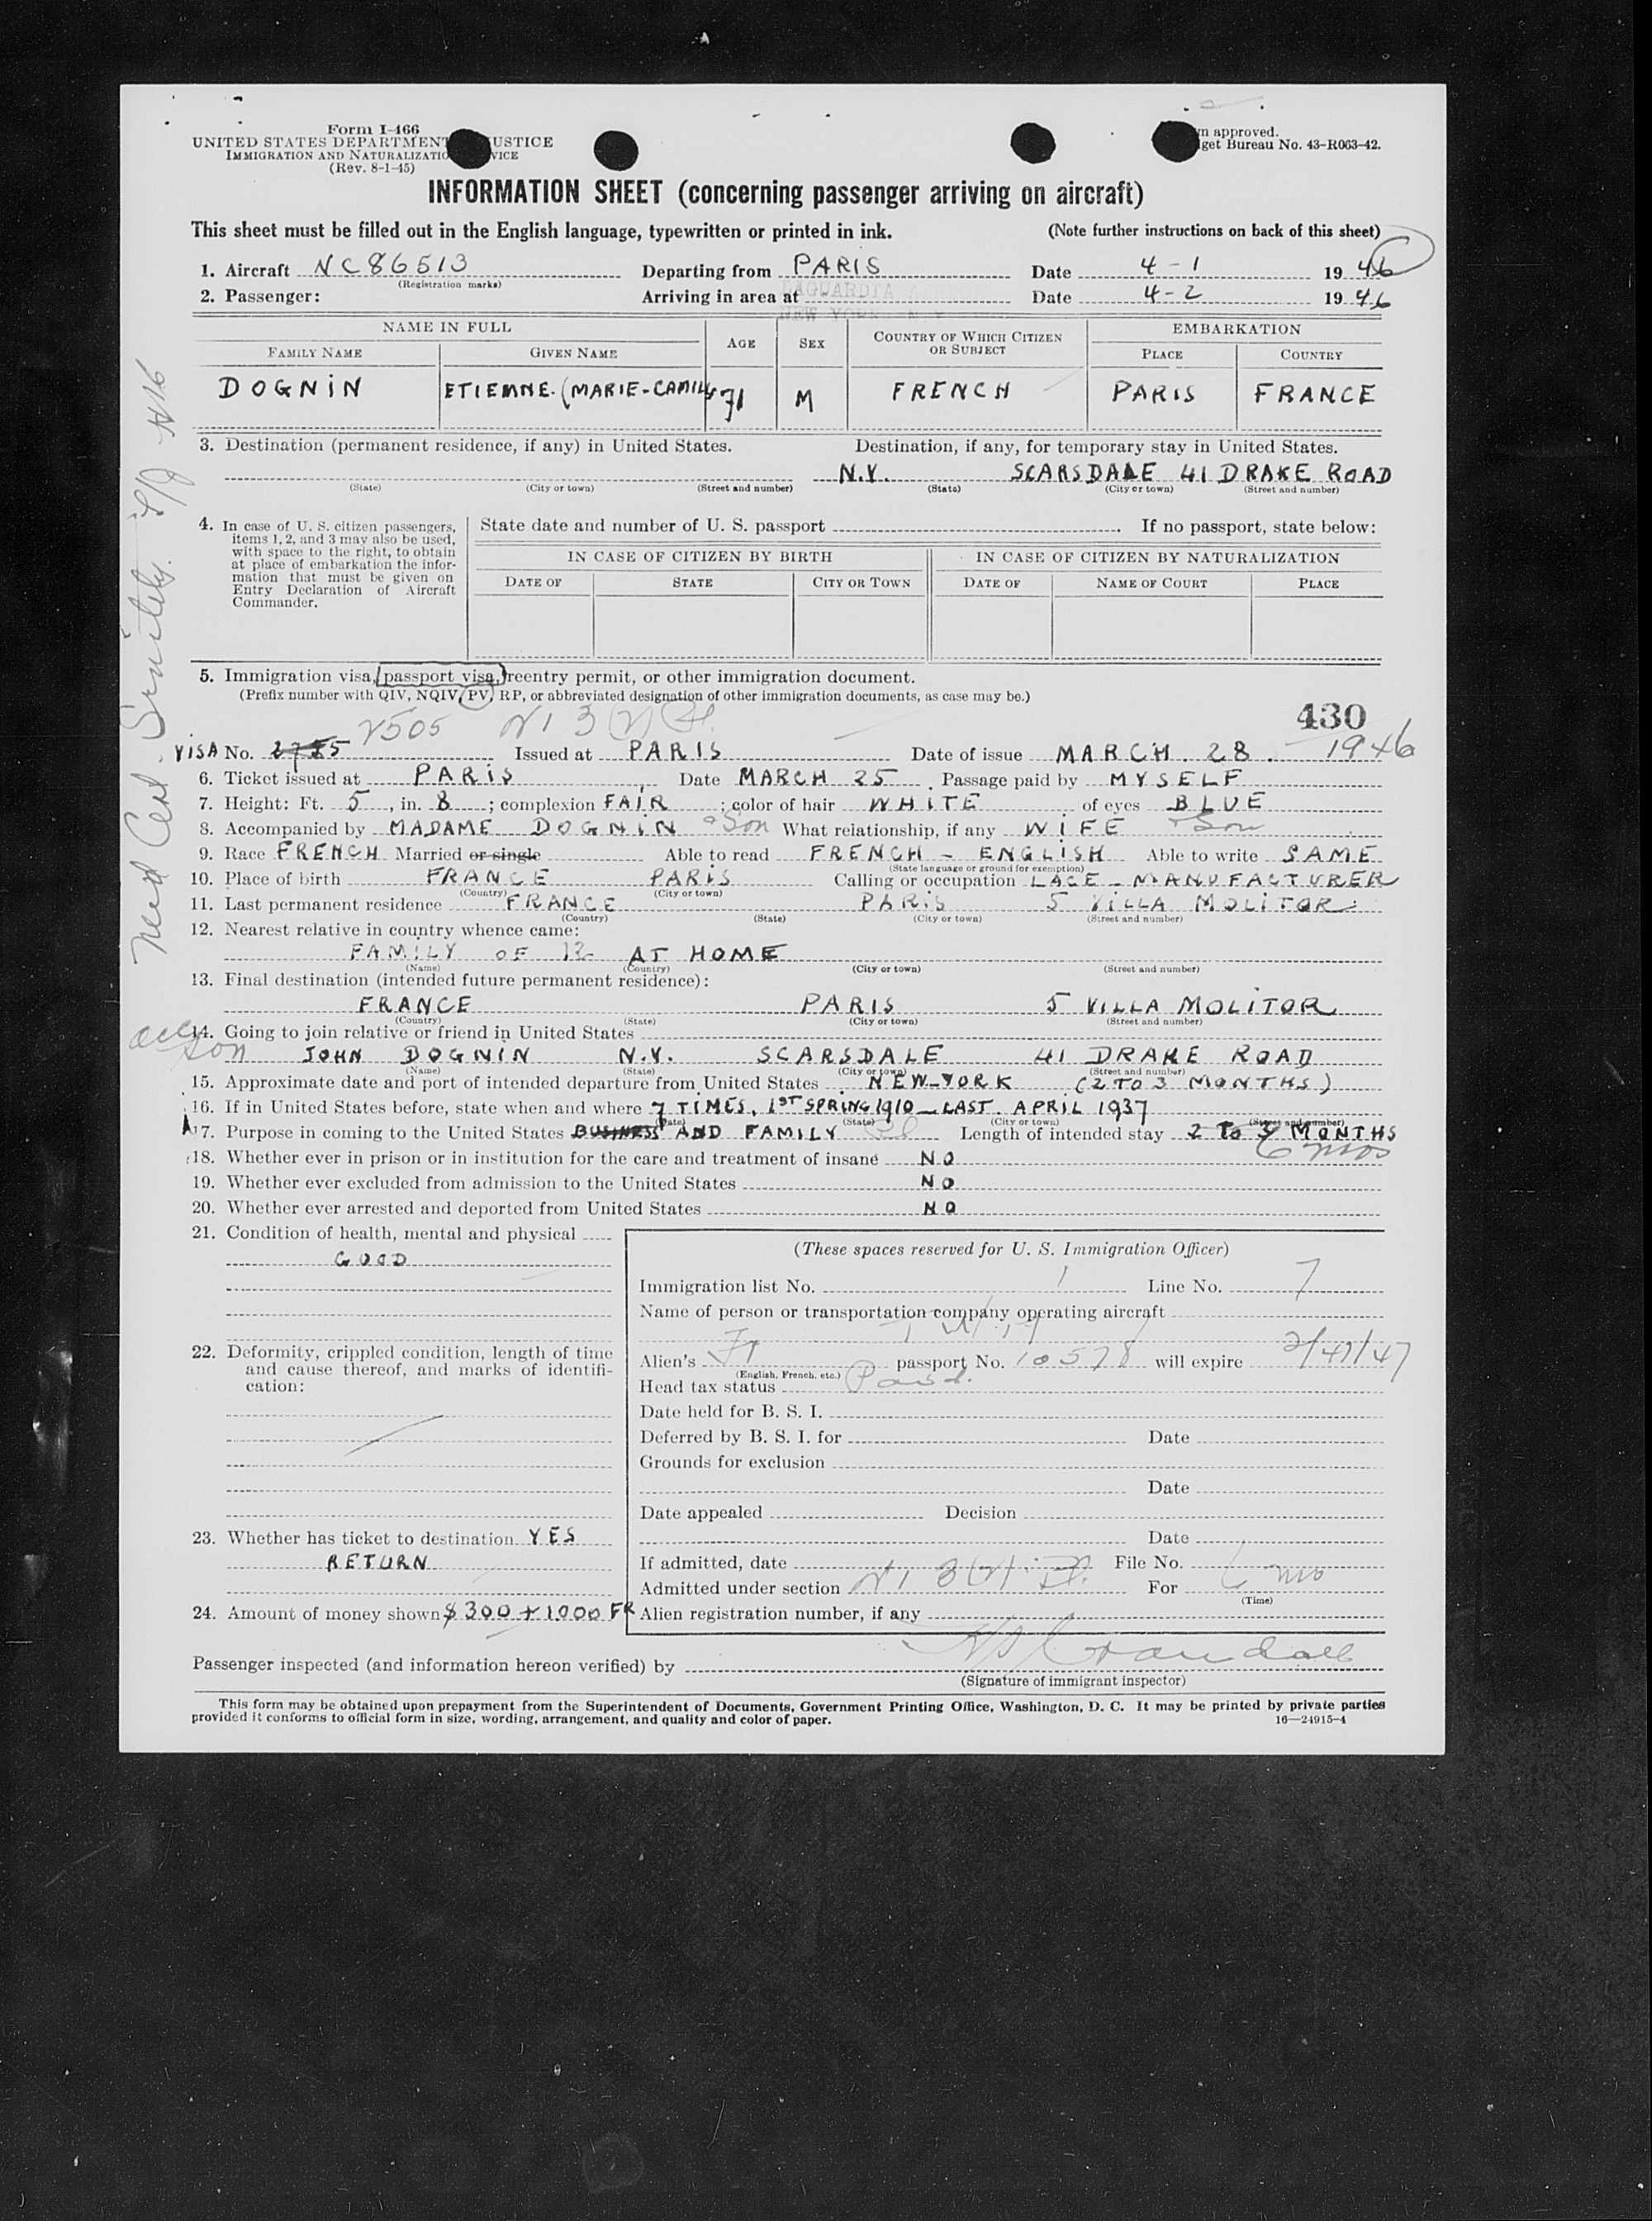 Form I-466
UNITED STATES DEPARTMENT USTICE
IMMIGRATION AND NATURALIZATIO VICE
(Rev. 8-1-45)
n approved.
get Bureau No. 43-R063-42.
INFORMATION SHEET (concerning passenger arriving on aircraft)
This sheet must be filled out in the English language, typewritten or printed in ink. (Note further instructions on back of this sheet)
1. Aircraft NC86513 Departing from PARIS Date 4-1 1946
(Registration marks)
2. Passenger: Arriving in area at LAGUARDIA Date 4-2 1946
NEW YORK N.Y.
NAME IN FULL AGE SEX COUNTRY OF WHICH CITIZEN OR SUBJECT EMBARKATION
FAMILY NAME GIVEN NAME PLACE COUNTRY
DOGNIN ETIENNE.(MARIE-CAMILL 71 M FRENCH PARIS FRANCE
3. Destination (permanent residence, if any) in United States. Destination, if any, for temporary stay in United States.
N.Y. SCARSDALE 41 DRAKE ROAD
(State) (City or town) (Street and number) (State) (City or town) (Street and number)
4. In case of U. S. citizen passengers, items 1, 2, and 3 may also be used, with space to the right, to obtain at place of embarkation the information that must be given on Entry Declaration of Aircraft Commander.
State date and number of U. S. passport . If no passport, state below:
IN CASE OF CITIZEN BY BIRTH IN CASE OF CITIZEN BY NATURALIZATION
DATE OF STATE CITY OR TOWN DATE OF NAME OF COURT PLACE
5. Immigration visa, passport visa, reentry permit, or other immigration document.
(Prefix number with QIV, NQIV, PV, RP, or abbreviated designation of other immigration documents, as case may be.)
430
V505
VISA No. Issued at PARIS Date of issue MARCH. 28. 1946
6. Ticket issued at PARIS Date MARCH 25 . Passage paid by MYSELF
7. Height: Ft. 5, in. 8; complexion FAIR; color of hair WHITE of eyes BLUE
8. Accompanied by MADAME DOGNIN & Son What relationship, if any WIFE & Son
9. Race FRENCH Married or single Able to read FRENCH - ENGLISH Able to write SAME
(State language or ground for exemption)
10. Place of birth FRANCE PARIS Calling or occupation LACE - MANUFACTURER
(Country) (City or town)
11. Last permanent residence FRANCE PARIS 5 VILLA MOLITOR
(Country) (State) (City or town) (Street and number)
12. Nearest relative in country whence came:
FAMILY OF 12 AT HOME
(Name) (Country) (City or town) (Street and number)
13. Final destination (intended future permanent residence):
FRANCE PARIS 5 VILLA MOLITOR
(Country) (State) (City or town) (Street and number)
14. Going to join relative or friend in United States
son JOHN DOGNIN N.Y. SCARSDALE 41 DRAKE ROAD
(Name) (State) (City or town) (Street and number)
15. Approximate date and port of intended departure from United States NEW-YORK (2 TO 3 MONTHS)
16. If in United States before, state when and where 7 TIMES, 1ST SPRING 1910 - LAST. APRIL 1937
(Date) (State) (City or town) (Street and number)
17. Purpose in coming to the United States BUSINESS AND FAMILY Length of intended stay 2 TO 3 MONTHS
6 mos
18. Whether ever in prison or in institution for the care and treatment of insane NO
19. Whether ever excluded from admission to the United States NO
20. Whether ever arrested and deported from United States NO
21. Condition of health, mental and physical
GOOD
22. Deformity, crippled condition, length of time and cause thereof, and marks of identification:
23. Whether has ticket to destination YES
RETURN
24. Amount of money shown $300 + 1000 FR
(These spaces reserved for U. S. Immigration Officer)
Immigration list No. 1 Line No. 7
Name of person or transportation company operating aircraft
T W A
Alien's Fr passport No. 10578 will expire
(English, French, etc.)
Head tax status Paid.
Date held for B. S. I.
Deferred by B. S. I. for Date
Grounds for exclusion
Date
Date appealed Decision
Date
If admitted, date File No.
Admitted under section For 6 mo
(Time)
Alien registration number, if any
Passenger inspected (and information hereon verified) by Crandall
(Signature of immigrant inspector)
This form may be obtained upon prepayment from the Superintendent of Documents, Government Printing Office, Washington, D. C. It may be printed by private parties
provided it conforms to official form in size, wording, arrangement, and quality and color of paper. 16—24915-4
Med Cert. Senility.